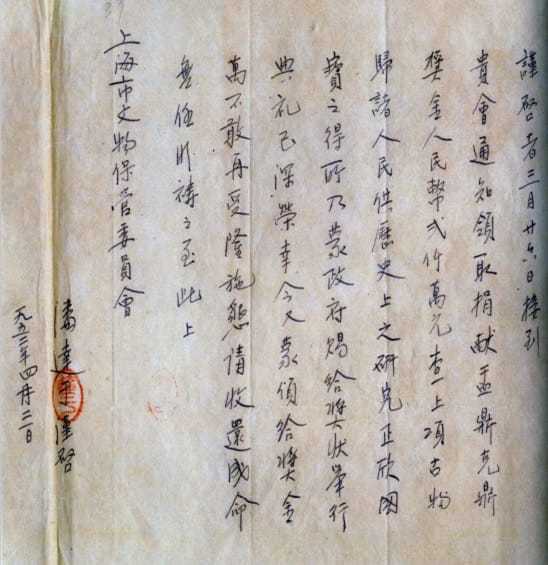 謹啓者三月廿六日接到
貴會通知領取捐献盂鼎克鼎
奬金人民幣弍仟萬元查上項古物
歸諸人民供歷史上之研究正欣國
寶之得所乃蒙政府賜給奬狀舉行
典礼已深榮幸今又蒙頒給奬金
萬不敢再受隆施懇請收還成命
無任盼禱之至此上
上海市文物保管委員會
潘達于謹啓
一九五二年四月二日